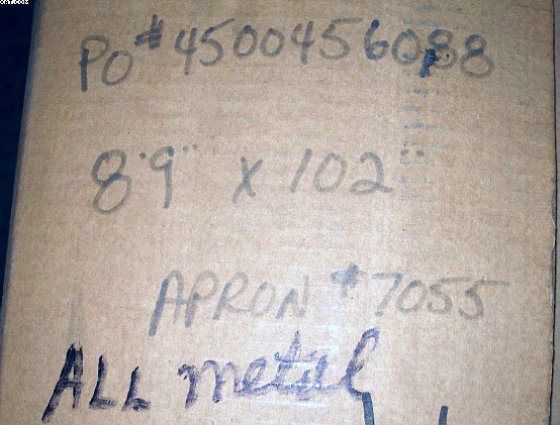 PO #4500456088
8'9" x 102"
APRON #7055
ALL metal